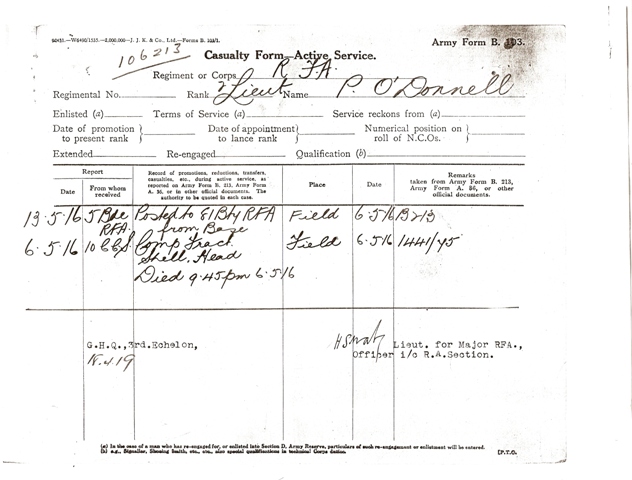 Army Form B. 103.
106213
Casualty Form—Active Service.
Regiment or Corps R F.A.
Regimental No. Rank 2 Lieut Name P. O'Donnell
Enlisted (a) Terms of Service (a) Service reckons from (a)
Date of promotion to present rank } Date of appointment to lance rank } Numerical position on roll of N.C.Os. }
Extended Re-engaged Qualification (b)
Report
Date
From whom received
Record of promotions, reductions, transfers, casualties, etc., during active service, as reported on Army Form B. 213, Army Form A. 36, or in other official documents. The authority to be quoted in each case.
Place
Date
Remarks taken from Army Form B. 213, Army Form A. 36, or other official documents.
13.5.16 5 Bde Posted to 81 Bty RFA Field 6.5.16 B213
RFA. from Base
6.5.16 10 CCS Comp Fract Field 6.5.16 1441/45
Shell. Head
Died 9.45pm 6.5.16
G.H.Q.,3rd.Echelon, Lieut. for Major RFA.,
18.4.19 Officer i/c R.A.Section.
(a) In the case of a man who has re-engaged for, or enlisted into Section D, Army Reserve, particulars of such re-engagement or enlistment will be entered.
(b) e.g., Signaller, Shoeing Smith, etc., etc., also special qualifications in technical Corps duties. [P.T.O.